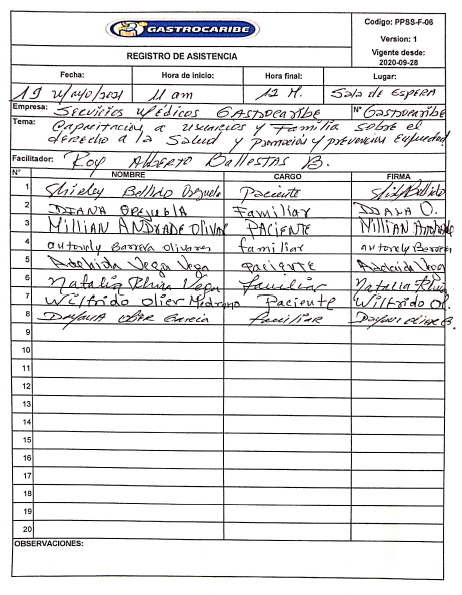 GASTROCARIBE
Codigo: PPSS-F-06
Version: 1
REGISTRO DE ASISTENCIA
Vigente desde:
2020-09-28
Fecha: Hora de inicio: Hora final: Lugar:
19 Mayo/2021 11 am 12 M. Sala de ESPERA
Empresa: Servicios Médicos Gastrocaribe N° Gastrocaribe
Tema: Capacitacion a usuarios y Familia sobre el
derecho a la Salud y promocion y prevencion Enfermedad
Facilitador: Roy Alberto Ballestas B.
N° NOMBRE CARGO FIRMA
1 Shirley Bellido Paciente
2 DIANA Familiar O.
3 Millian ANDRADE Olivar PACIENTE Millian Andrade
4 antonely Barrera olivares familiar antonely Barrera
5 Adelaida Vega Vega paciente Adelaida Vega
6 Natalia Vega familiar Natalia
7 Wilfrido Olier Medrano Paciente Wilfrido Ol.
8 Olier Garcia familiar Olier G.
9
10
11
12
13
14
15
16
17
18
19
20
OBSERVACIONES: